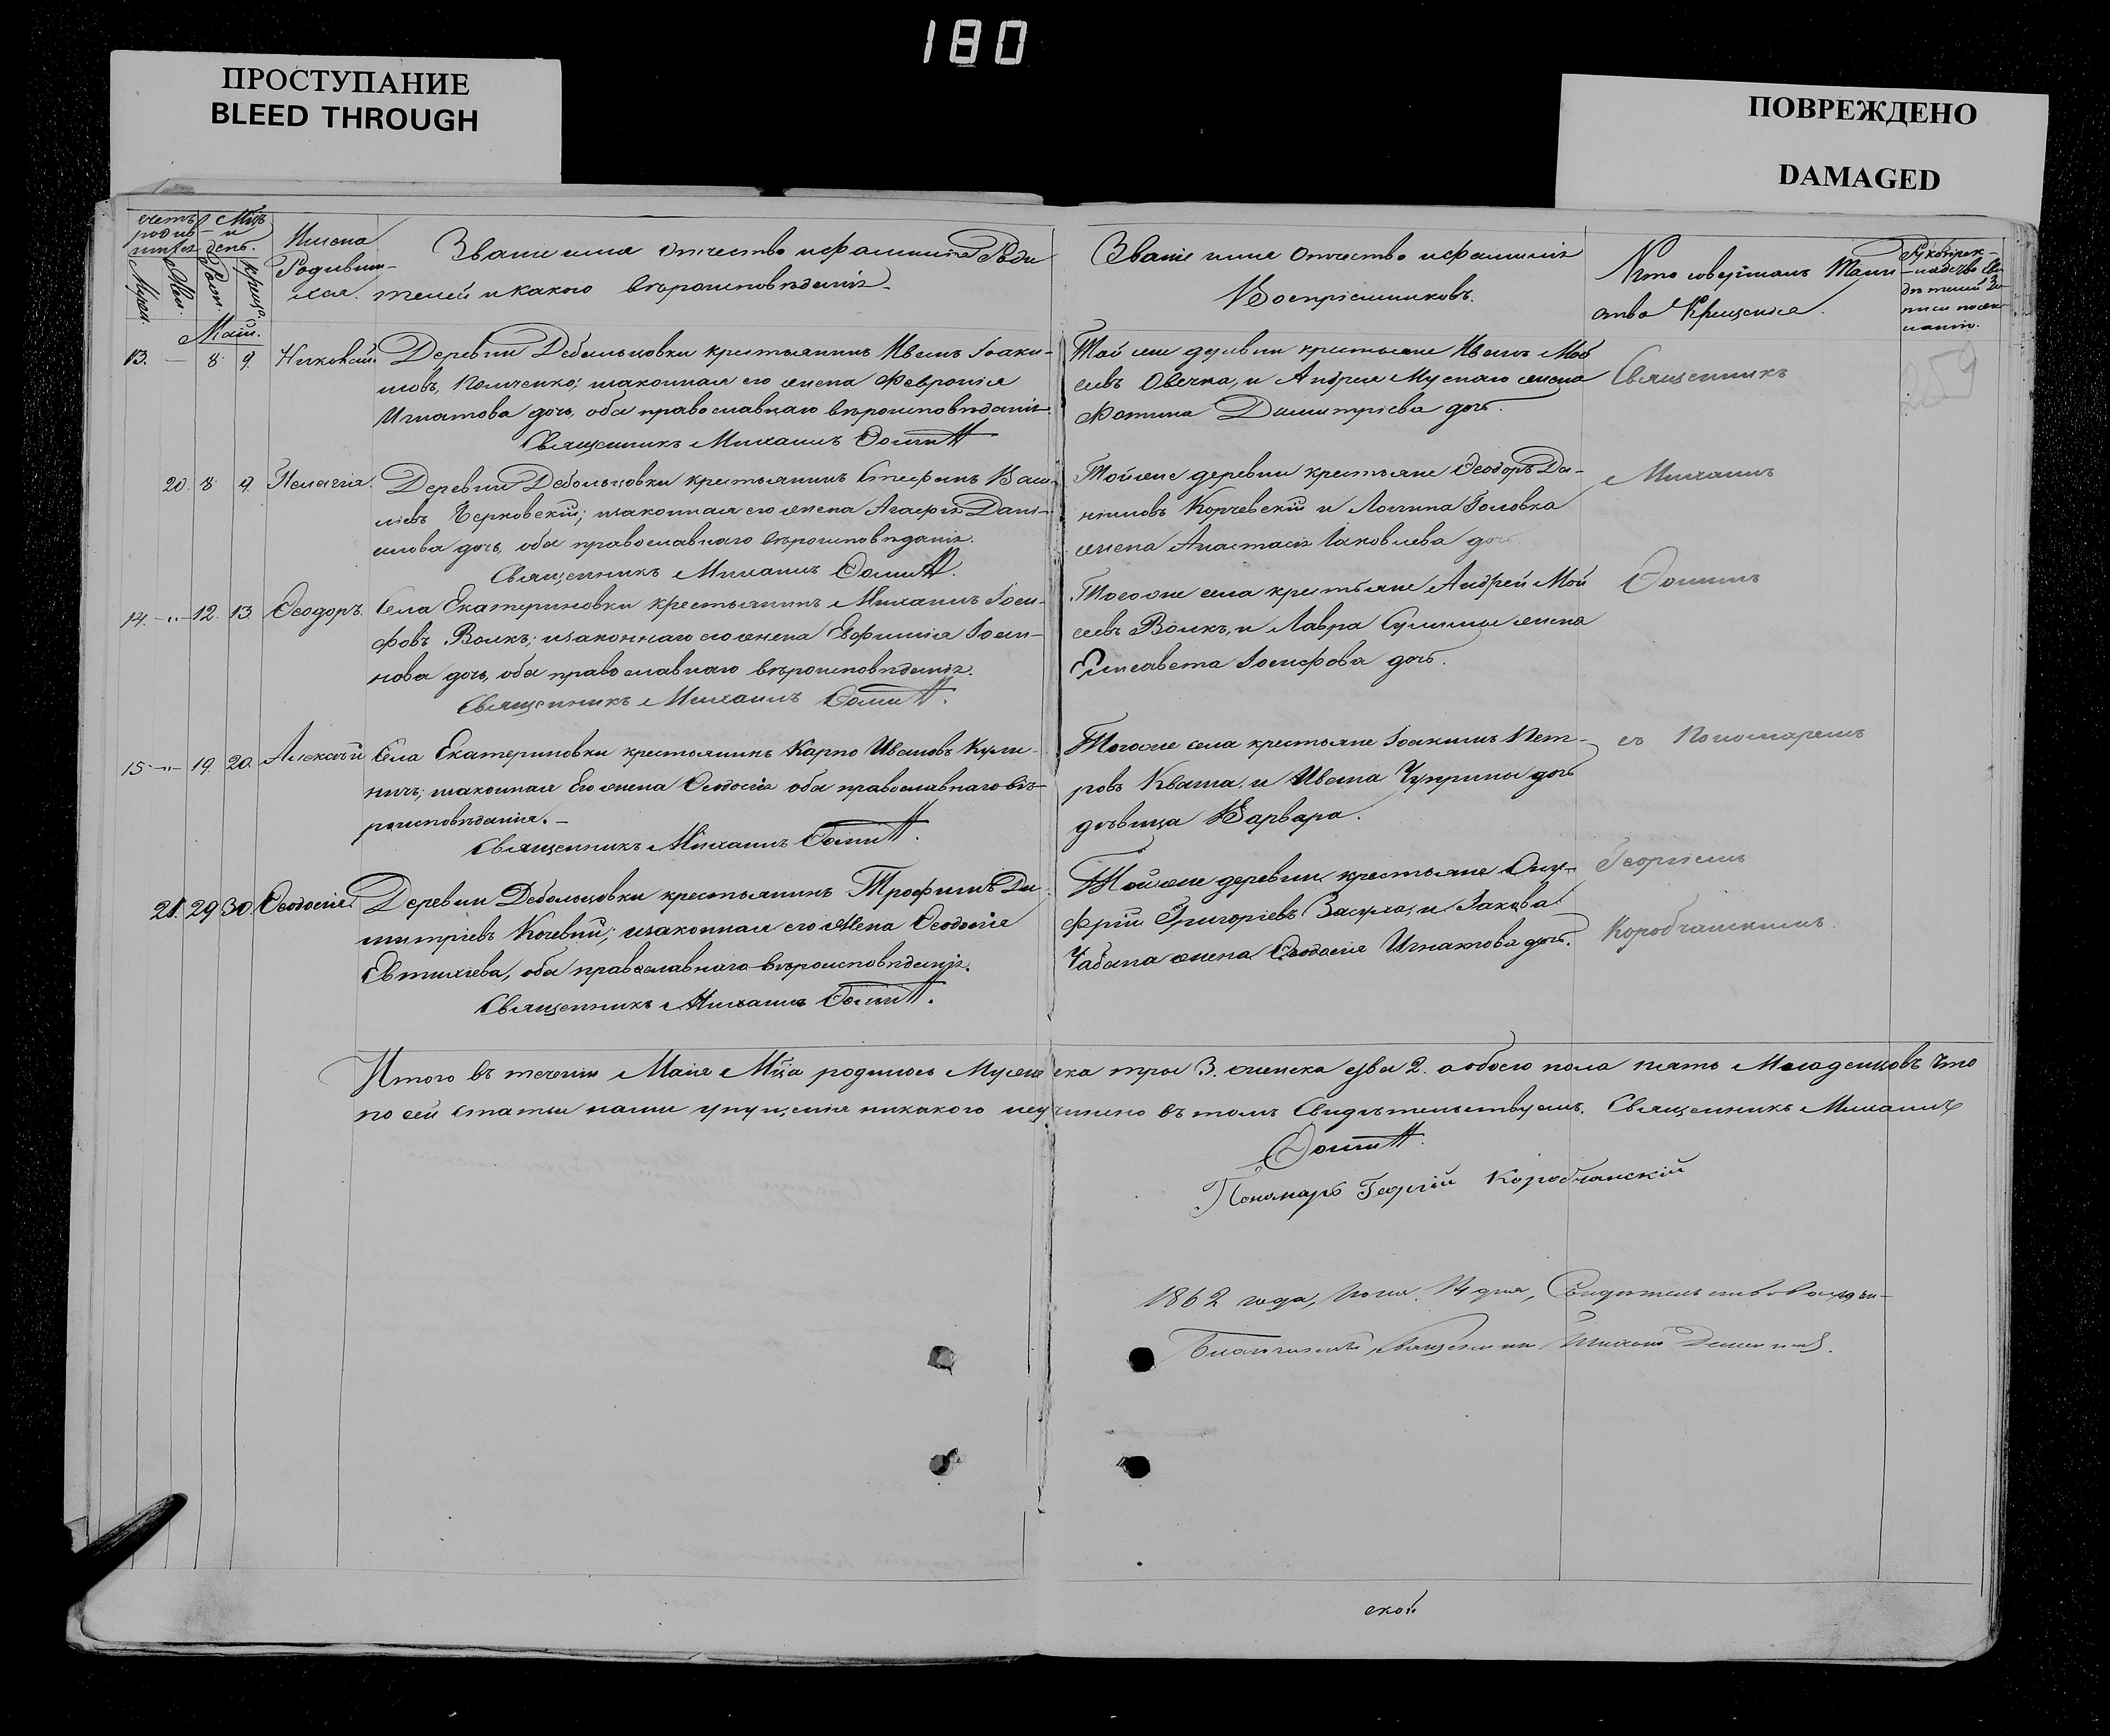 180
ПРОСТУПАНИЕ
BLEED THROUGH
ПОВРЕЖДЕНО
DAMAGED
счетъ родив
шихся
Муж.
Жен.
Мцъ и день.
Рожд.
Крещ.
Имена
Родивш-
ихся.
Званіе имя отчество и фамилія Роди
телей и какого вѣроисповѣданія.
Званіе имя отчество и фамилія
Воспріемниковъ.
Кто совершалъ Таин
ство Крещенія.
Рукоприк-
ладство сви
дѣтелей за
писи по же
ланію.
Маій.
13. — 8. 9. Николай.
Деревни Дебальцовки крестьянинъ Иванъ Іоаки-
мовъ, Польченко; законная его жена Февронія
Игнатова дочь, оба православнаго вѣроисповѣданія.
Священникъ Михаилъ Ѳоминъ
Той же деревни крестьяне Иванъ Мой
сѣевъ Овечка, и Андрея жена
Фотина Димитріева дочь.
Священникъ
20. 8. 9. Пелагія.
Деревни Дебальцовки крестьянинъ Стефанъ Васи
ліевъ Черковскій; законная его жена Агафія Дані-
илова дочь, оба православнаго вѣроисповѣданія.
Священникъ Михаилъ Ѳоминъ.
Той же деревни крестьяне Ѳеодоръ Да-
ніиловъ Корчевскій и Логгина Головка
жена Анастасія Іаковлева дочь.
Михаилъ
14. -"- 12. 13. Ѳеодоръ.
Села Екатериновки крестьянинъ Михаилъ Іоси-
фовъ Волкъ; законная его жена Евфимія
нова дочь, оба православнаго вѣроисповѣданія.
Священникъ Михаилъ Ѳоминъ.
Того же села крестьяне Андрей Мой
сѣевъ Волкъ, и Лавра Сулимы жена
Елисавета Іосифова дочь.
Ѳоминъ
15 -"- 19. 20. Алексѣй
Села Екатериновки крестьянинъ Карпъ Ивановъ Кули-
ничъ; законная Его жена Ѳеодосія оба православнаго вѣ-
роисповѣданія. —
Священникъ Михаилъ Ѳоминъ.
Того же села крестьяне Іоакимъ Пет-
ровъ Кваша, и Ивана Чуприны дочь
дѣвица Варвара.
съ Пономаремъ
21. 29 30. Ѳеодосія.
Деревни Дебальцовки крестьянинъ Трофимъ Ди
митріевъ Кочевий; законная его жена Ѳеодосія
Евтихіева, оба православнаго вѣроисповѣданія.
Священникъ Михаилъ Ѳоминъ.
Той же деревни крестьяне Ону-
фрій Григоріевъ Засуха, и Іакова
Чабана жена Ѳеодосія Игнатова дочь.
Георгіемъ
Коробчанскимъ.
Итого въ теченіи Маія Мца родилось Мужеска три 3. женска два 2. а обоего пола пять Младенцовъ Что
по сей статьи нами упущенія никакого неучинено въ томъ Свидѣтельствуемъ. Священникъ Михаилъ
Ѳоминъ.
Пономарь Георгій Коробчанскій
1862 года, 14 дня, Свидѣтельствовалъ
Благочинный Священникъ
ской